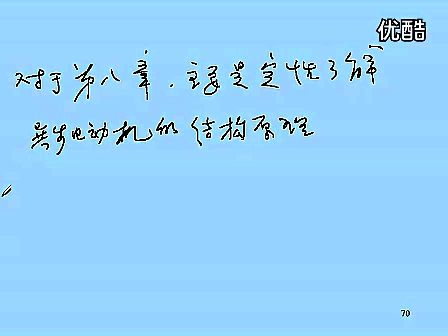 优酷
对于第八章，主要是定性了解
异步电动机的结构原理
70